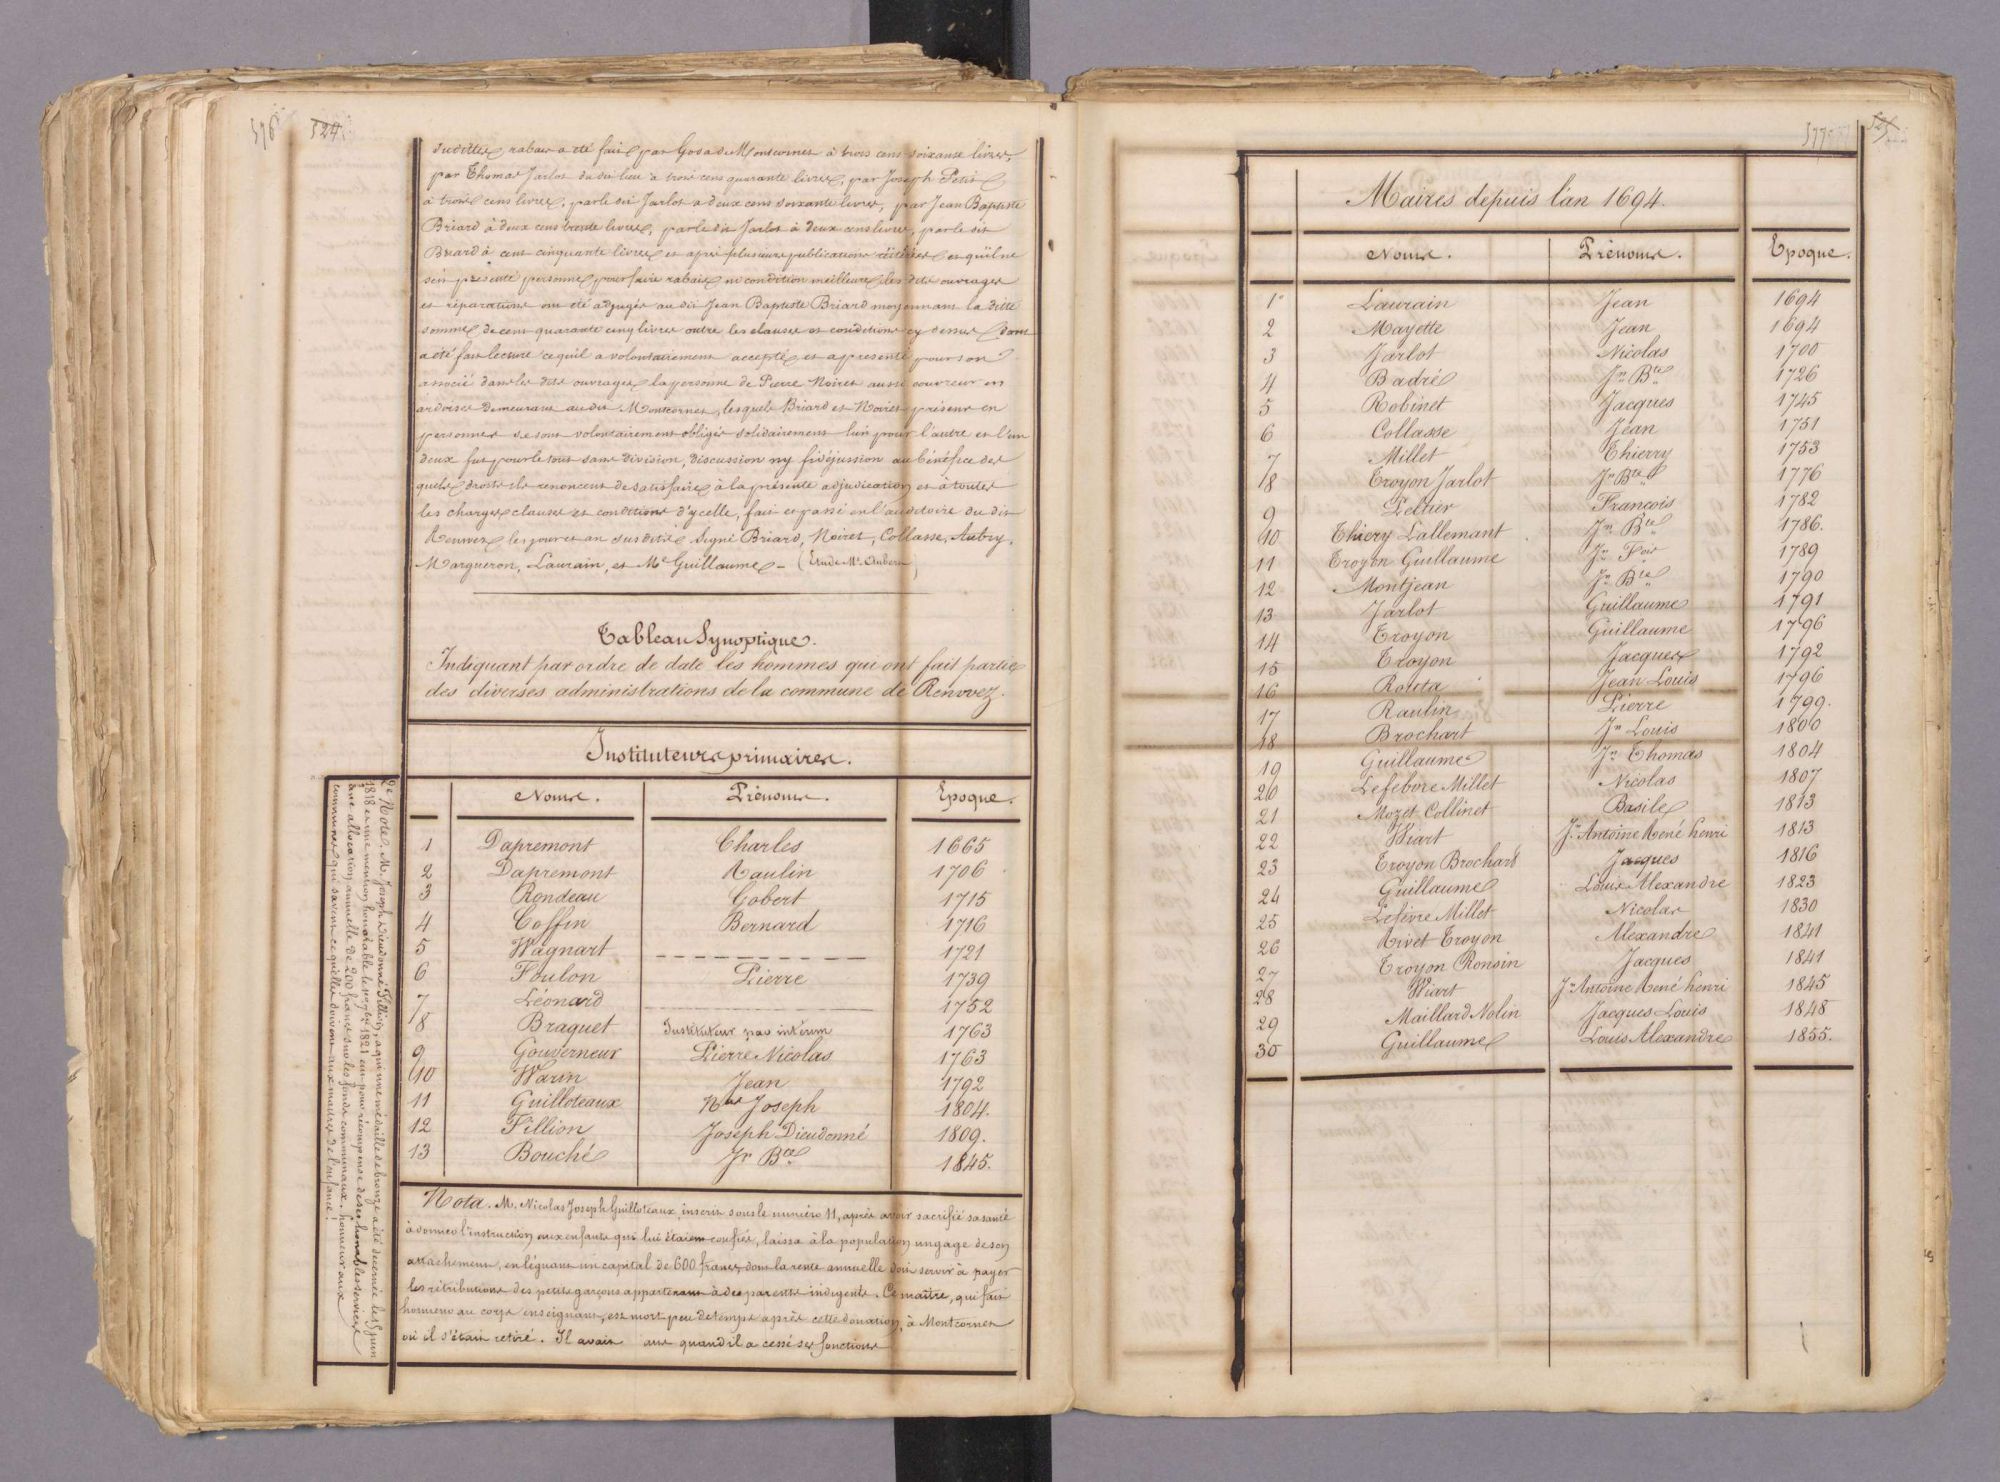 576 524
Susdittes rabais a été fait par Goda de Montcornet à trois cens soixante livres,
par Thomas Jarlot du dit lieu à trois cens quarante livres, par Joseph Petit
à trois cens livres, par le dit Jarlot a deux cens soixante livres, par Jean Baptiste
Briard à deux cens trente livres, par le dit Jarlot à deux cens livres, par le dit
Briard à cent cinquante livres et après plusieurs publications réitérées et qu'il ne
s'en présenté personne pour faire rabais ni condition meilleure, les dits ouvrages
et réparations ont été adjugés au dit Jean Baptiste Briard moyennant la ditte
somme de cent quarante cinq livres outre les clauses et conditions cy dessus dont
a été fait lecture ce qu'il a volontairement accepté et a présenté pour son
associé dans les dits ouvrages la personne de Pierre Noiret aussi couvreur en
ardoises demeurant au dit Montcornet, lesquels Briard et Noiret présent en
personnes se sont volontairement obligés solidairement l'un pour l'autre et l'un
deux seul pour le tout sans division, discussion ny fidéjussion au bénéfice des
quels droits ils renoncent de satisfaire à la présente adjudication et à toutes
les charges clauses et conditions d'ycelle, fait et passé en l'auditoire du dit
Renwez les jour et an susdits. Signé Briard, Noiret, Collasse, Aubry,
Marqueron, Laurain, et Me Guillaume - (Etude Me Aubern)
Tableau Synoptique.
Indiquant par ordre de date les hommes qui ont fait partie
des diverses administrations de la commune de Renwez.
Instituteurs primaires.
Noms. Prénoms. Epoque.
1 Dapremont Charles 1665
2 Dapremont Raulin 1706
3 Rondeau Gobert 1715
4 Coffin Bernard 1716
5 Wagnart 1721
6 Foulon Pierre 1739
7 Léonard 1752
8 Braquet Instituteur par intérim 1763
9 Gouverneur Pierre Nicolas 1763
10 Warin Jean 1792
11 Guilloteaux Nas Joseph 1804.
12 Fillion Joseph Dieudonné 1809.
13 Bouché Jn Bte 1845.
Nota. M. Nicolas Joseph Guilloteaux, inscrit sous le numéro 11, après avoir sacrifié sa santé
à donner l'instruction aux enfants qui lui étaient confiés, laissa à la population un gage de son
attachement, en léguant un capital de 600 francs, dont la rente annuelle doit servir à payer
les rétributions des petits garçons appartenant à des parents indigents. Ce maître, qui fait
honneur au corps enseignant, est mort peu de temps après cette donation, à Montcornet
où il s'était retiré. Il avait ans quand il a cessé ses fonctions
2e Note. M. Joseph Dieudonné Fillion, a qui une médaille de bronze a été décernée le 5 juin
1818 et une mention honorable le 1821 eut pour récompense de ses honorables services
une allocation annuelle de 200 francs sur les fonds communaux. honneur aux
communes qui savent ce qu'elles doivent aux maîtres de l'enfance!
577 525
Maires depuis l'an 1694.
Noms. Prénoms. Epoque.
1er Laurain Jean 1694
2 Mayette Jean 1694
3 Jarlot Nicolas 1700
4 Badré Jn Bte 1726
5 Robinet Jacques 1745
6 Collasse Jean 1751
7 Millet Thierry 1753
8 Troyon Jarlot Jn Bte 1776
9 Peltier Francois 1782
10 Thiery Lallemant Jn Bte 1786.
11 Troyon Guillaume Jn Fois 1789
12 Montjean Jn Bte 1790
13 Jarlot Guillaume 1791
14 Troyon Guillaume 1796
15 Troyon Jacques 1792
16 Routa Jean Louis 1796
17 Raulin Pierre 1799.
18 Brochart Jn Louis 1800
19 Guillaume Jn Thomas 1804
20 Lefebvre Millet Nicolas 1807
21 Mozet Collinet Basile 1813
22 Wiart Jn Antoine René henri 1813
23 Troyon Brochart Jacques 1816
24 Guillaume Louis Alexandre 1823
25 Lefèvre Millet Nicolas 1830
26 Rivet Troyon Alexandre 1841
27 Troyon Ronsin Jacques 1841
28 Wiart Jn Antoine René henri 1845
29 Maillard Nolin Jacques Louis 1848
30 Guillaume Louis Alexandre 1855.